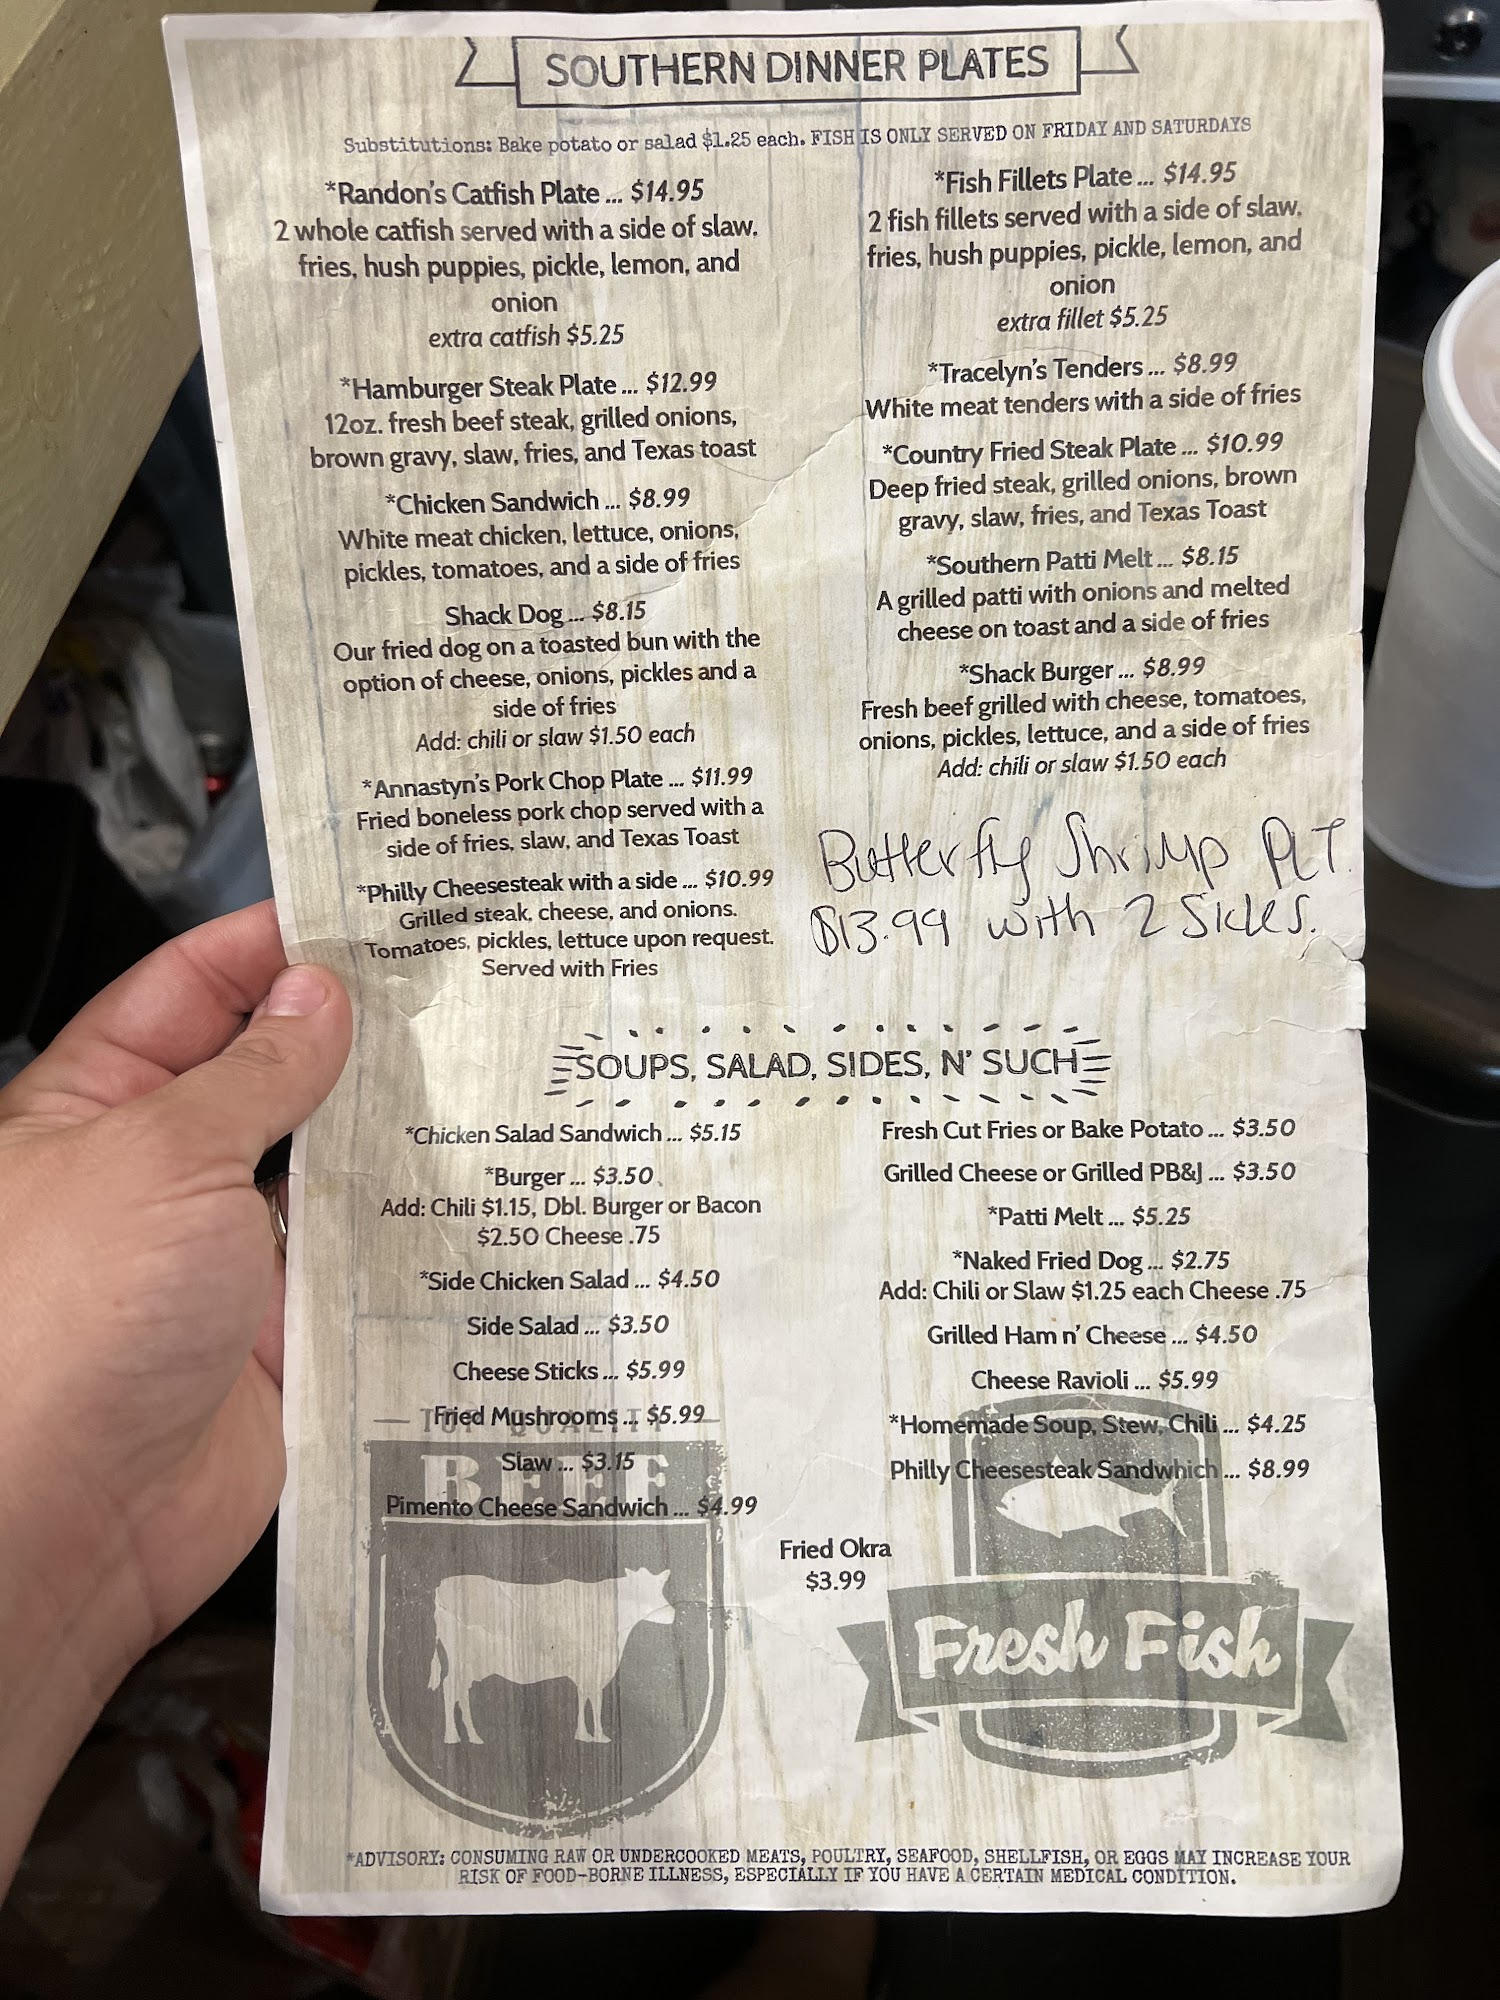 SOUTHERN DINNER PLATES
Substitutions: Bake potato or salad $1.25 each. FISH IS ONLY SERVED ON FRIDAY AND SATURDAYS
*Randon's Catfish Plate ... $14.95
2 whole catfish served with a side of slaw,
fries, hush puppies, pickle, lemon, and
onion
extra catfish $5.25
*Hamburger Steak Plate ... $12.99
12oz. fresh beef steak, grilled onions,
brown gravy, slaw, fries, and Texas toast
*Chicken Sandwich ... $8.99
White meat chicken, lettuce, onions,
pickles, tomatoes, and a side of fries
Shack Dog ... $8.15
Our fried dog on a toasted bun with the
option of cheese, onions, pickles and a
side of fries
Add: chili or slaw $1.50 each
*Annastyn's Pork Chop Plate ... $11.99
Fried boneless pork chop served with a
side of fries, slaw, and Texas Toast
*Philly Cheesesteak with a side ... $10.99
Grilled steak, cheese, and onions.
Tomatoes, pickles, lettuce upon request.
Served with Fries
*Fish Fillets Plate ... $14.95
2 fish fillets served with a side of slaw,
fries, hush puppies, pickle, lemon, and
onion
extra fillet $5.25
*Tracelyn's Tenders ... $8.99
White meat tenders with a side of fries
*Country Fried Steak Plate ... $10.99
Deep fried steak, grilled onions, brown
gravy, slaw, fries, and Texas Toast
*Southern Patti Melt ... $8.15
A grilled patti with onions and melted
cheese on toast and a side of fries
*Shack Burger ... $8.99
Fresh beef grilled with cheese, tomatoes,
onions, pickles, lettuce, and a side of fries
Add: chili or slaw $1.50 each
Butterfly Shrimp PLT.
$13.99 with 2 Sides.
SOUPS, SALAD, SIDES, N' SUCH
*Chicken Salad Sandwich ... $5.15
*Burger ... $3.50
Add: Chili $1.15, Dbl. Burger or Bacon
$2.50 Cheese .75
*Side Chicken Salad ... $4.50
Side Salad ... $3.50
Cheese Sticks ... $5.99
Fried Mushrooms ... $5.99
Slaw ... $3.15
Pimento Cheese Sandwich ... $4.99
Fresh Cut Fries or Bake Potato ... $3.50
Grilled Cheese or Grilled PB&J ... $3.50
*Patti Melt ... $5.25
*Naked Fried Dog ... $2.75
Add: Chili or Slaw $1.25 each Cheese .75
Grilled Ham n' Cheese ... $4.50
Cheese Ravioli ... $5.99
*Homemade Soup, Stew, Chili ... $4.25
Philly Cheesesteak Sandwhich ... $8.99
Fried Okra
$3.99
BEEF
Fresh Fish
*ADVISORY: CONSUMING RAW OR UNDERCOOKED MEATS, POULTRY, SEAFOOD, SHELLFISH, OR EGGS MAY INCREASE YOUR
RISK OF FOOD-BORNE ILLNESS, ESPECIALLY IF YOU HAVE A CERTAIN MEDICAL CONDITION.